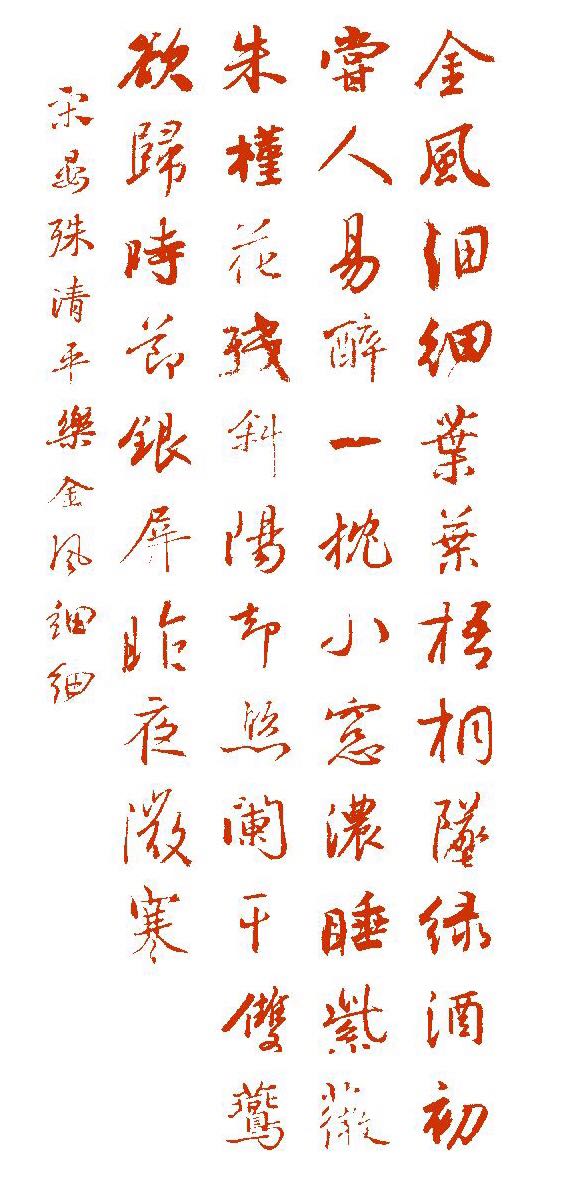 金風細細葉葉梧桐墜緑酒初
嘗人易醉一枕小窓濃睡紫薇
朱槿花殘斜陽却照闌干雙鷰
欲歸時節銀屏昨夜微寒
宋晏殊清平樂金风細細